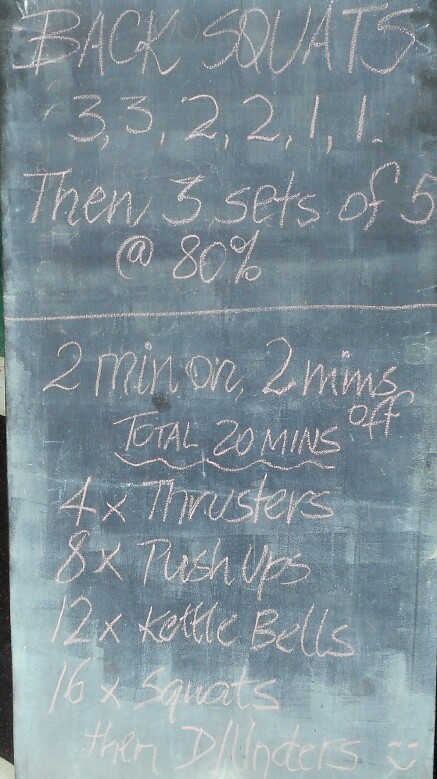 BACK SQUATS
3, 3, 2, 2, 1, 1.
Then 3 sets of 5
@ 80%
2 min on, 2 mins
off
TOTAL 20 MINS
4x Thrusters
8x Push Ups
12x Kettle Bells
16x Squats
then D/Unders :)